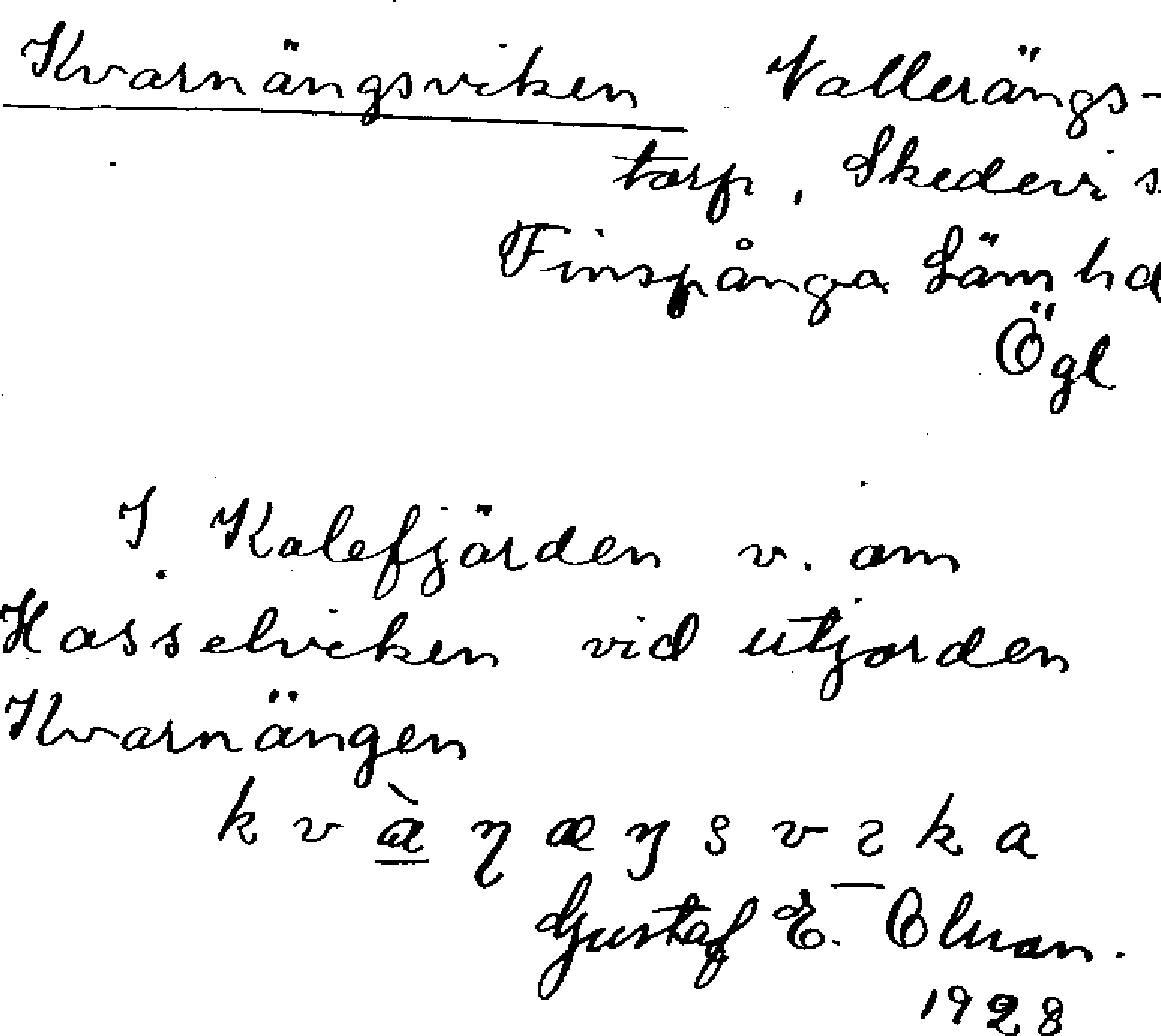 Kvarnängsviken Vallerängs-
torp, Skedevi s
Finspånga Läns hd
Ögl
I Kalefjärden v. om
Hasselviken vid utjorden
Kvarnängen
Gustaf E. Olsson.
1928